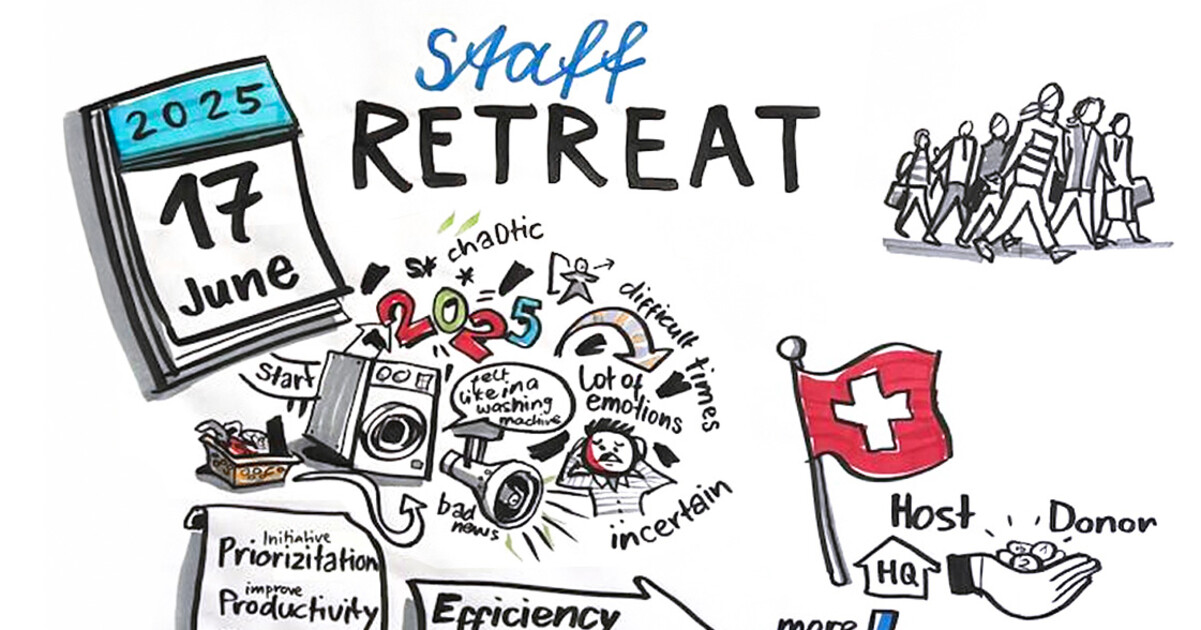 staff
RETREAT
2025
17
June
chaotic
2025
difficult times
Start
felt
like in a
washing
machine
Lot of
emotions
bad
news
incertain
Host
Donor
HQ
Initiative
Priorizitation
improve
Productivity
Efficiency
more